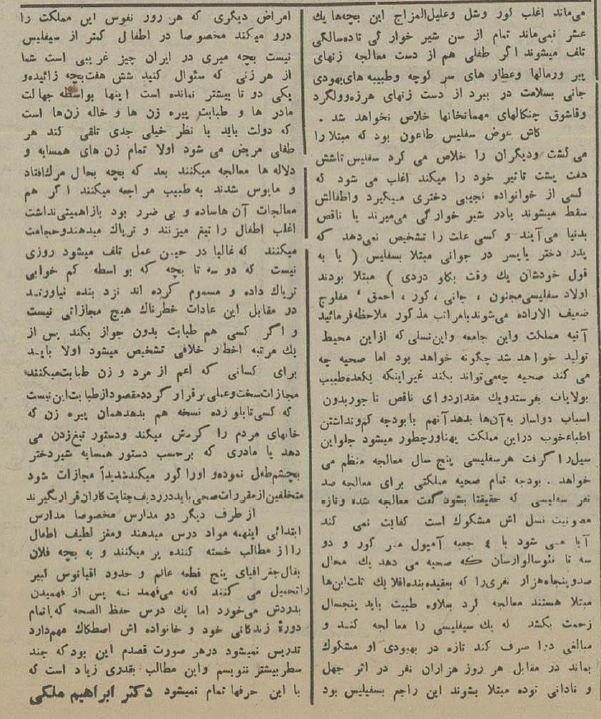 می‌ماند اغلب کور وشل وعلیل‌المزاج این بچه‌ها یك
عشر نمی‌ماند تمام از سن شیر خوارگی تاده‌سالگی
تلف میشوند اگر طفلی هم از دست معالجه زنهای
پیر ورمالها وعطار های سر کوچه وطبیبه‌های‌یهودی
جانی بسلامت در ببرد از دست زنهای هرزه‌وولگرد
وقاشوق چنگالهای مهمانخانها خلاص نخواهد شد .
کاش عوض سفلیس طاعون بود که مبتلا را
می کشت ودیگران را خلاص می کرد سفلیس تاشش
هفت پشت تاثیر خود را میکند اغلب می شود که
کسی از خوانواده نجیبی دختری میگیرد واطفالش
سقط میشوند یادر شیر خوارگی می‌میرند یا ناقص
بدنیا می‌آیند و کسی علت را تشخیص نمی‌دهد که
پدر دختر یاپسر در جوانی مبتلا بسفلیس ( یا به
قول خودشان یك وقت بکاو دردی ) مبتلا بودند
اولاد سفلیسی‌مجنون ، جانی ، کور ، احمق ، مفلوج
ضعیف الاراده می‌شوند بامراتب مذکور ملاحظه‌فرمائید
آتیه مملکت واین جامعه واین‌نسلی که ازاین محیط
تولید خواهد شد چگونه خواهد بود اما صحیه چه
می کند صحیه چه‌می‌تواند بکند غیراینکه یکعده‌طبیب
بولایات بفرستدویك مقداردوای ناقص تاجوربدون
اسباب دواساز به‌آن‌ها بدهد آنهم بابودجه کم‌ونداشتن
اطباءخوب دراین مملکت پهناورچطور میشود جلواین
سیل‌را گرفت هرسفلیسی پنج سال معالجه منظم می
خواهد . بودجه تمام صحیه مملکتی برای معالجه صد
نفر سفلیسی که حقیقتا بشودگفت معالجه شده وتازه
مصونیت نسل اش مشکوك است کفایت نمی کند
آیا می شود با ٤ جعبه آمپول و دو
سه تا نئوسالوارسان که صحیه می دهد یك محال
صدوپنجاه‌هزار نفری‌را که بعقیده‌بنده‌اقلا یك ثلث‌این‌ها
مبتلا هستند معالجه کرد بعلاوه طبیب باید پنجسال
زحمت بکشد که یك سفیلیسی را معالجه کند و
مبالغی دوا صرف کند تازه در بهبودی او مشکوك
بماند در مقابل هر روز هزاران نفر در اثر جهل
و نادانی توده مبتلا بشوند این راجع بسفیلیس بود
امراض دیگری که هر روز نفوس این مملکت را
درو میکند مخصوصا در اطفال کمتر از سیفلیس
نیست بچه میری در ایران چیز غریبی است شما
از هر زنی که سئوال کنید شش هفت‌بچه زائیده‌و
یکی دو تا بیشتر نمانده است اینها بواسطه جهالت
مادر ها و طبابت پیره زن ها و خاله زن‌ها است
که دولت باید با نظر خیلی جدی تلقی کند هر
طفلی مریض می شود اولا تمام زن های همسایه و
دلاله ها معالجه میکنند بعد که بچه بحال مرك‌افتاد
و مایوس شدند به طبیب مراجعه میکنند اگر هم
معالجات آن هاساده و بی ضرر بود بازاهمیتی‌نداشت
اغلب اطفال را تیغ میزنند و تریاك میدهندوحجامت
میکنند که‌غالبا در حین عمل تلف میشود روزی
نیست که دو سه تا بچه که بو اسطه کم خوابی
تریاك داده و مسموم کرده اند نزد بنده نیاورنـد
در مقابل این عادات خطرناك هیچ مجازاتی نیست
و اگر کسی هم طبابت بدون جواز بکند پس از
یك مرتبه اخطار خلافی تشخیص میشود اولا بایـد
برای کسانی که اعم از مرد و زن طبابت‌میکنند
مجازات‌سخت‌وعملی برقرار کرددمقصودازطبابت‌این‌نیست
که کسی‌تابلو زده نسخه هم بدهدهمان پیره زن که
خانهای مردم را گردش میکند ودستور تیغ‌زدن می
دهد یا مادری که برحسب دستور همسایه شیردختر
بچشم‌طفل نموده‌و اورا کور میکندشدیداً مجازات شود
متخلفین‌ازمقررات‌صحی‌بایددرردیف‌جنایت‌کاران‌قرارگیرند
از طرف دیگر دو مدارس مخصوصا مدارس
ابتدائی اینهمه مواد درس میدهند ومغز لطیف اطفال
رااز مطالب خسته کننده پر میکنند و به بچه فلان
بقال‌جغرافیای پنج قطعه عالم و حدود اقیانوس کبیر
راتحمیل می کنند که‌نه می‌فهمد نـه پس از فهمیدن
بدردش می‌خورد اما یك درس حفظ الصحه که‌باتمام
دورهٔ زندگانی خود و خانواده اش اصطکاك مهم‌دارد
تدریس نمیشود درهر صورت قصدم این بود که چند
سطر بیشتر ننویسم واین مطالب بقدری زیاد است که
با این حرفها تمام نمیشود دکتر ابراهیم ملکی